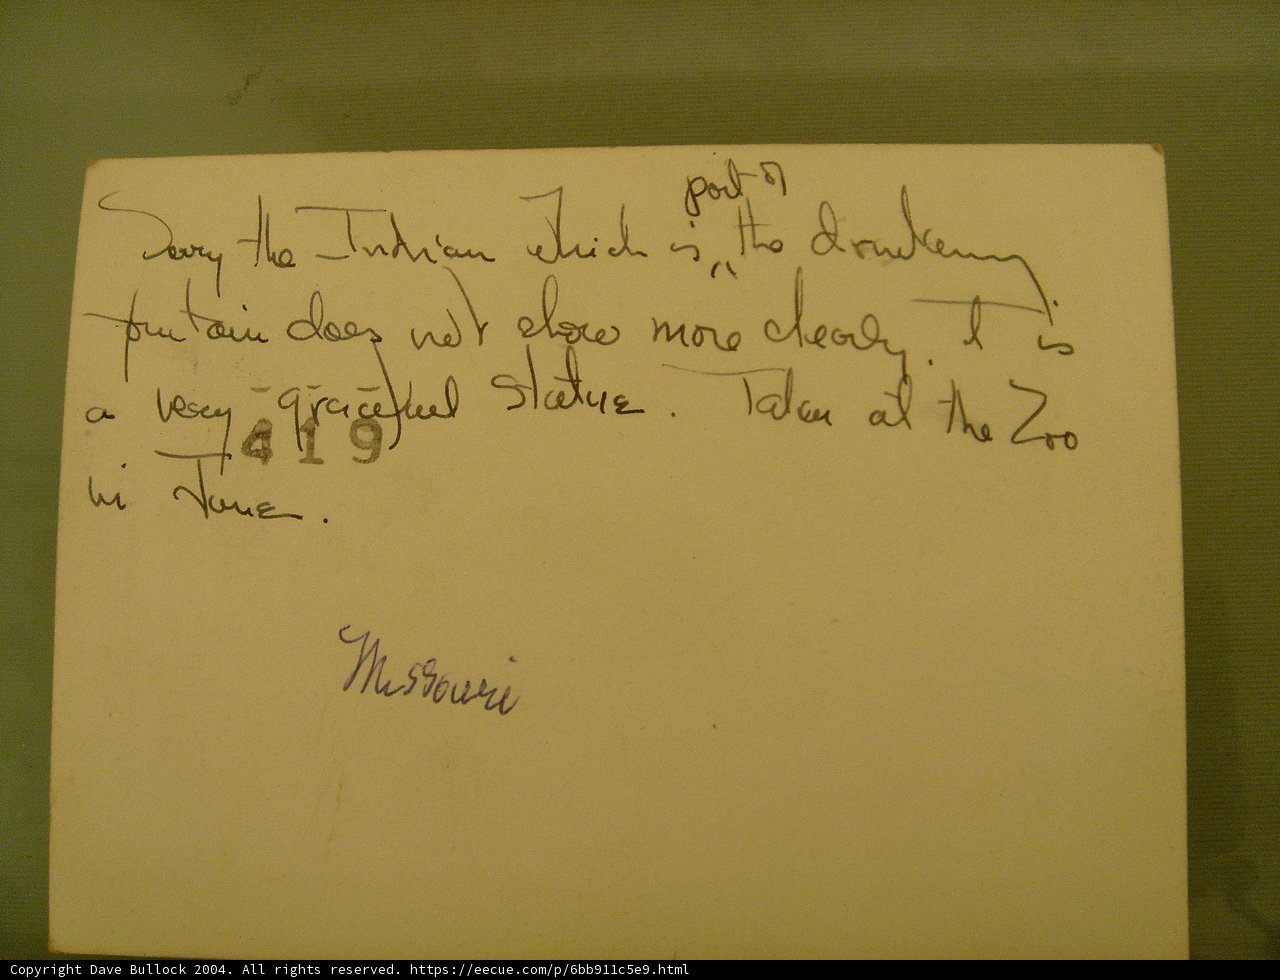 part of
Sorry the Indian which is " the drinking
fountain does not show more clearly. It is
a very graceful statue. Taken at the Zoo
419
in June.
Missouri
Copyright Dave Bullock 2004. All rights reserved. https://eecue.com/p/6bb911c5e9.html